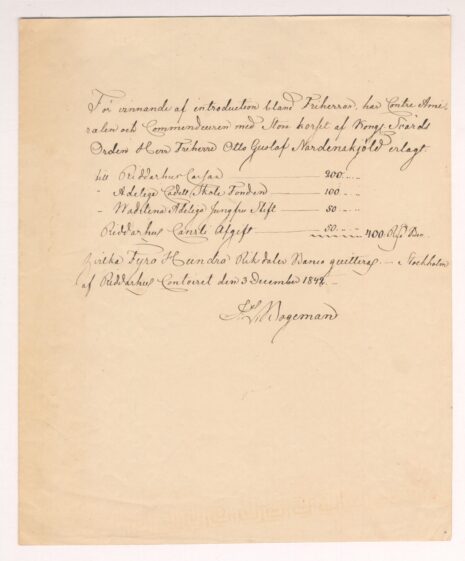 För vinnande af introduction bland Friherrar, har Contre Ami-
ralen och Commendeuren med Stora korset af Kongl. Svärds
Orden Herr Friherre Otto Gustaf Nordenskjöld erlagt
till Riddarhus Cassan 200
" Adelige Cadett Skole Fonden 100
" Wadstena Adelige Jungfru Stift 50
Riddarhus Cansli Afgift 50 400 Rd Bco
hvilka Fyra Hundra Riksdaler Banco quitteras Stockholm
af Riddarhus Contoiret den 3 December 184